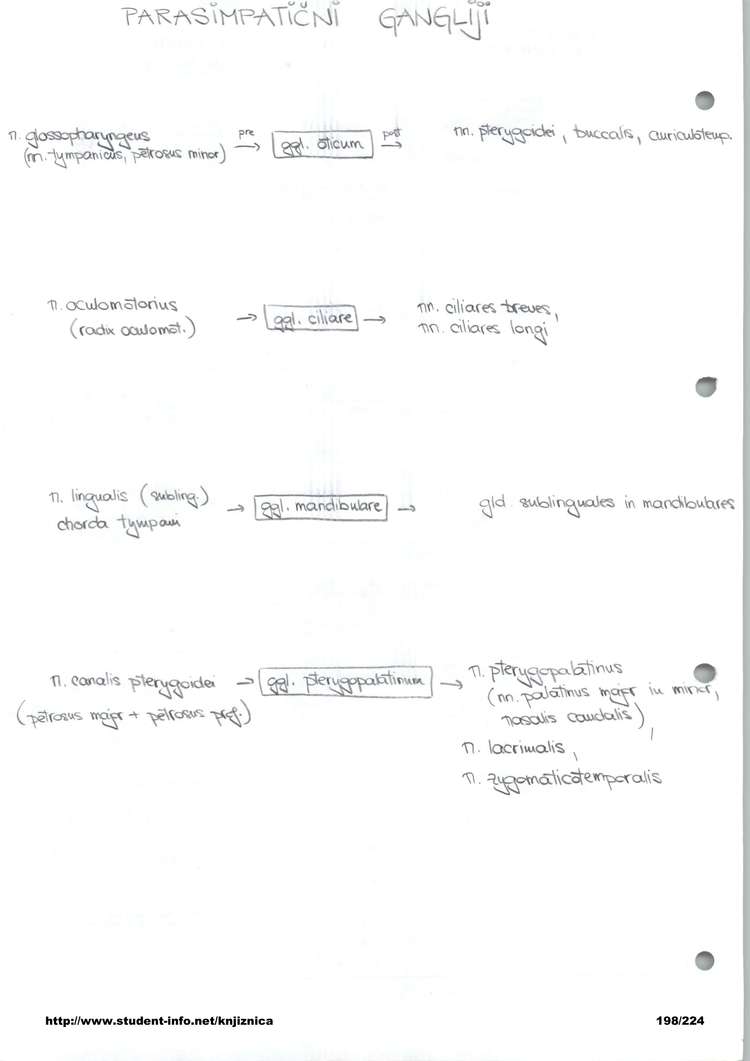 PARASIMPATIČNI GANGLIJI
n. glossopharyngeus
(nn. tympanicus, petrosus minor)
pre
ggl. oticum
post
nn. pterygoidei, buccalis, auriculotemp.
n. oculomotorius
(radix oculomot.)
ggl. ciliare
nn. ciliares breves,
nn. ciliares longi
n. lingualis (subling.)
chorda tympani
ggl. mandibulare
gld. sublinguales in mandibulares
n. canalis pterygoidei
(petrosus major + petrosus prof.)
ggl. pterygopalatinum
n. pterygopalatinus
(nn. palatinus major in minor,
nasalis caudalis),
n. lacrimalis,
n. zygomaticotemporalis
http://www.student-info.net/knjiznica
198/224